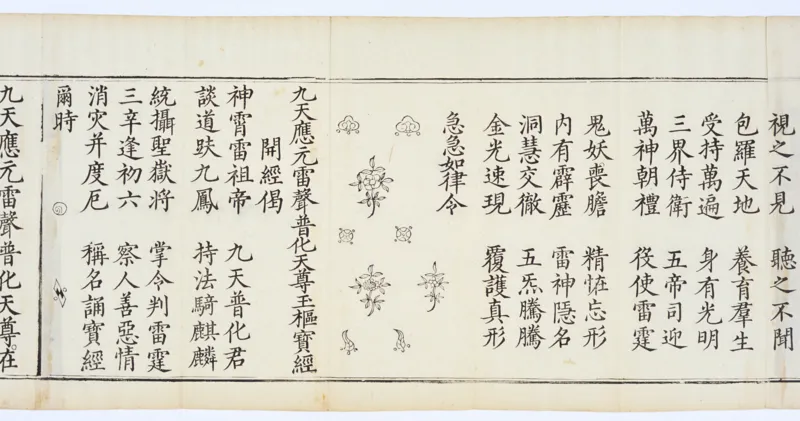 視之不見　聽之不聞
包羅天地　養育羣生
受持萬遍　身有光明
三界侍衛　五帝司迎
萬神朝禮　役使雷霆
鬼妖喪膽　精怪忘形
內有霹靂　雷神隱名
洞慧交徹　五炁騰騰
金光速現　覆護真形
急急如律令
九天應元雷聲普化天尊玉樞寶經
開經偈
神霄雷祖帝　九天普化君
談道趺九鳳　持法騎麒麟
統攝聖嶽將　掌令判雷霆
三辛逢初六　察人善惡情
消灾并度厄　稱名誦寶經
爾時
九天應元雷聲普化天尊。在